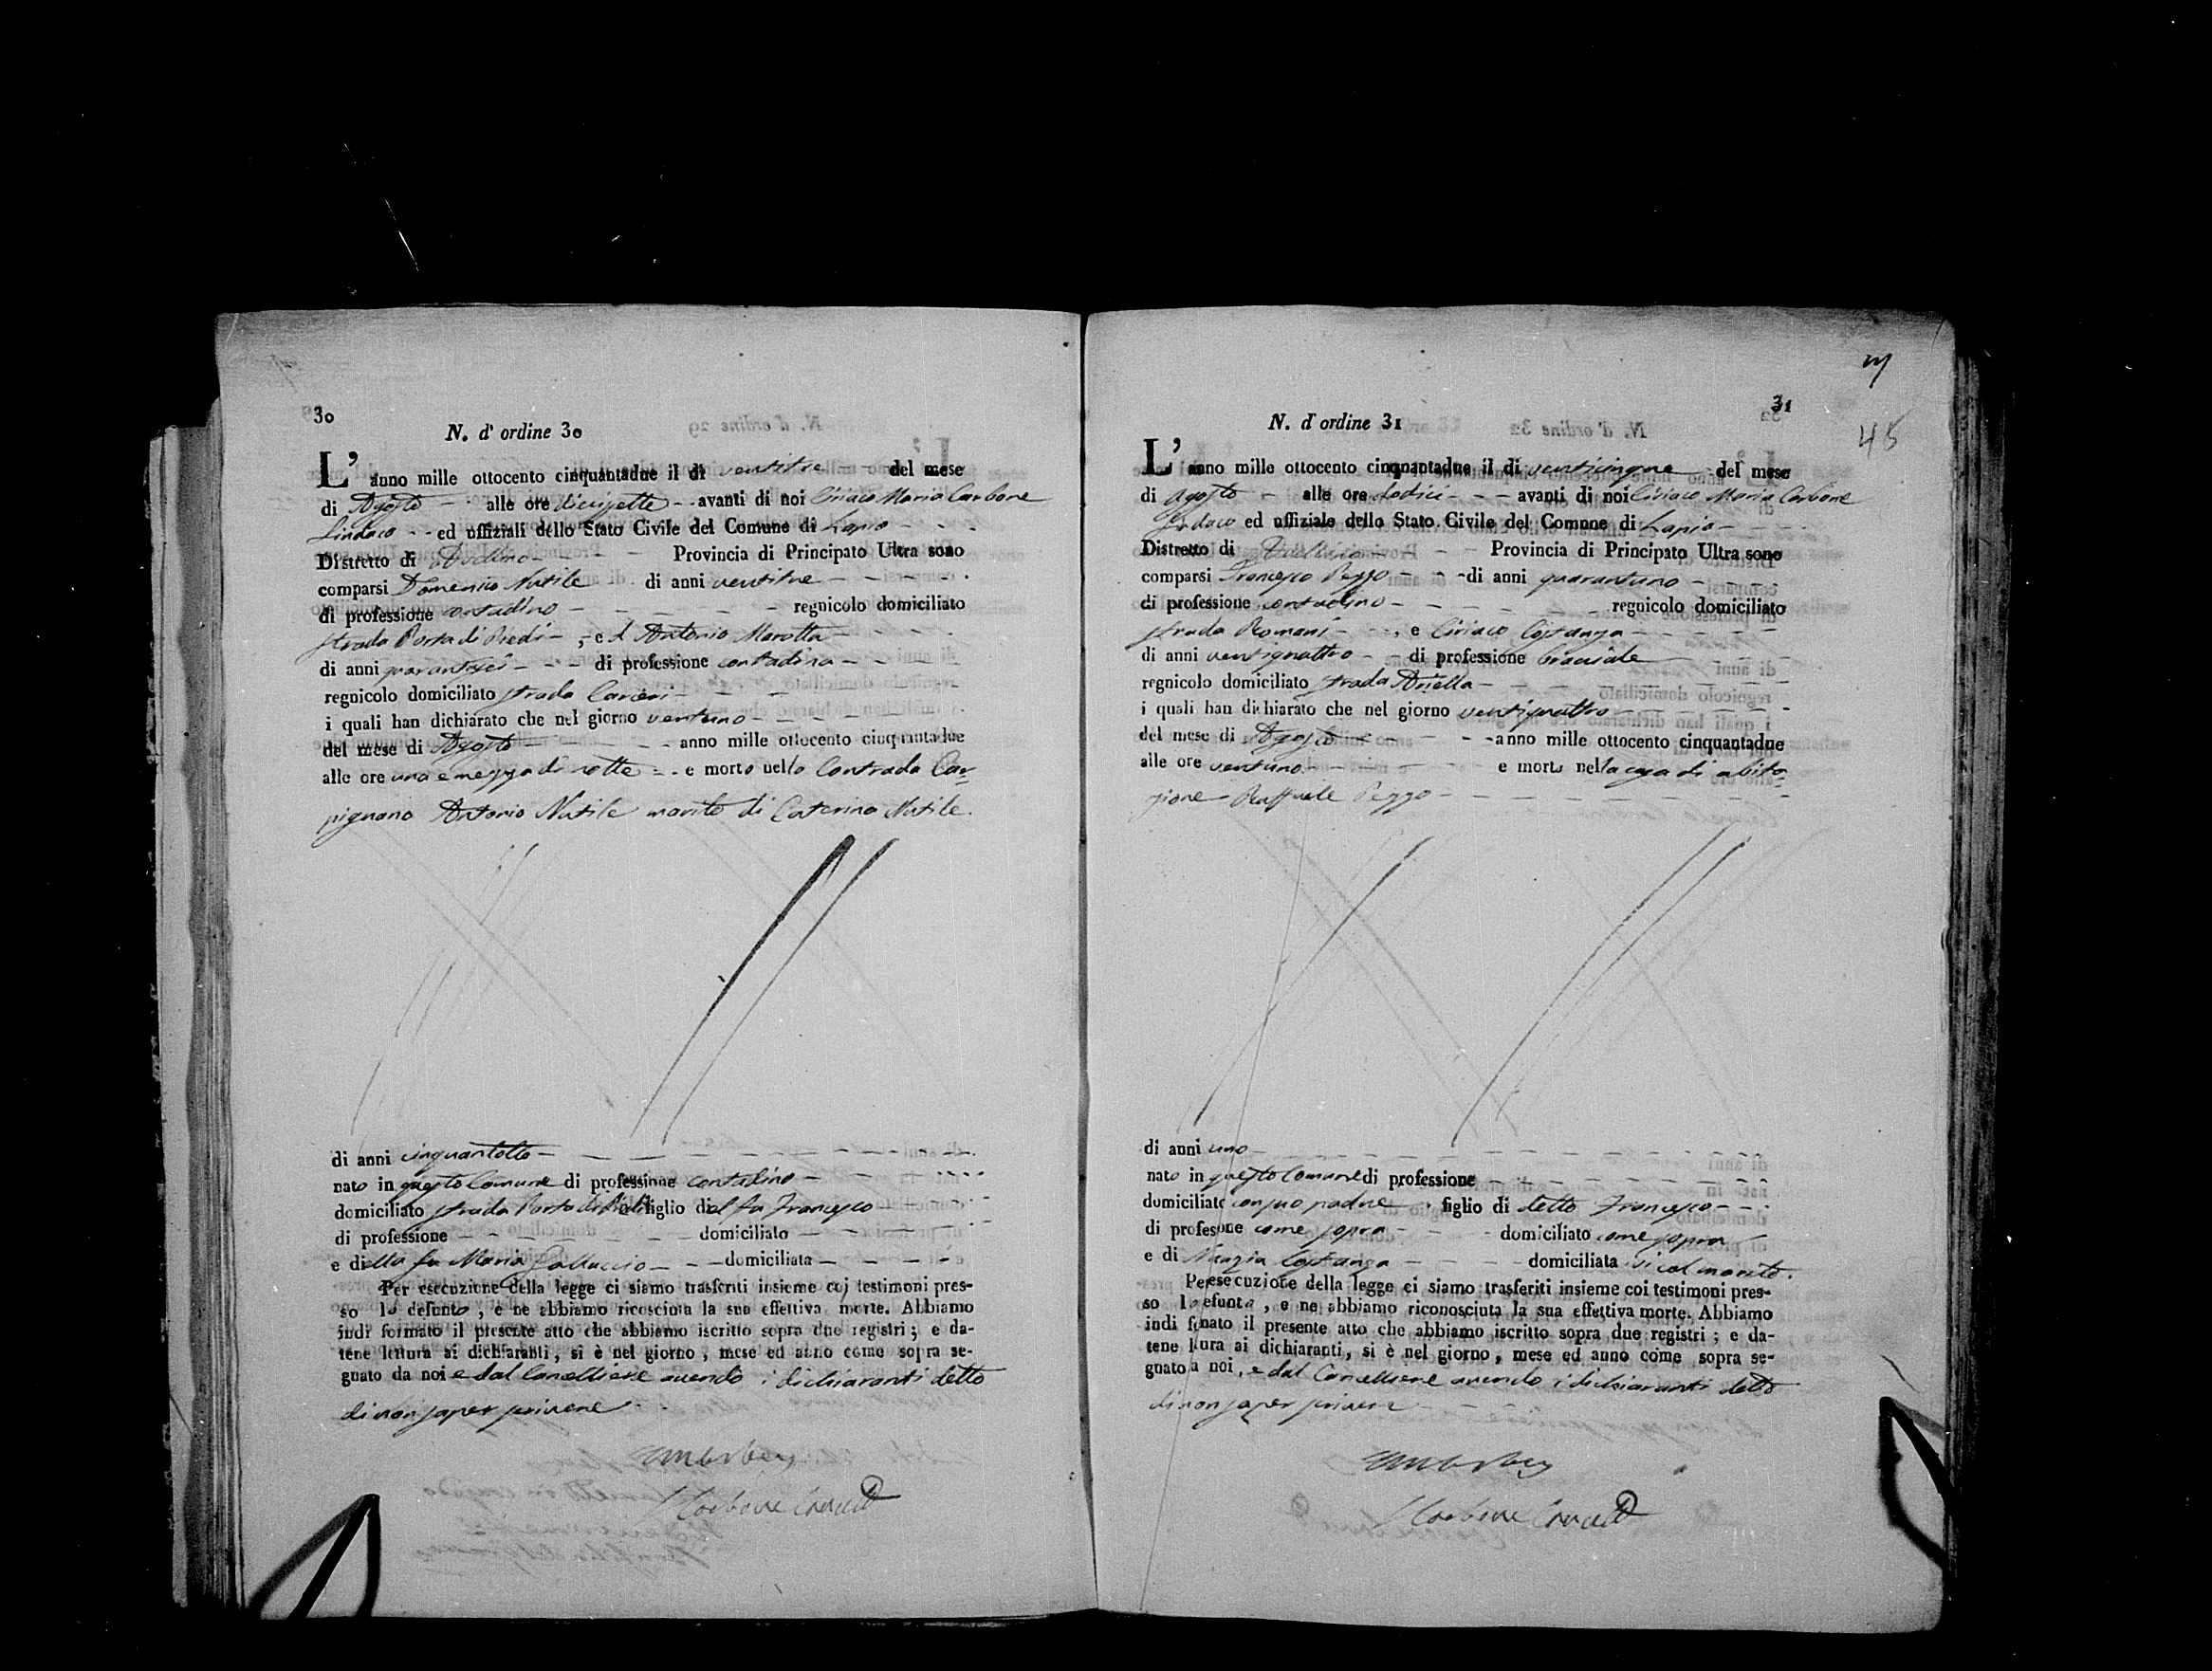 30
N. d' ordine 30
L' anno mille ottocento cinquantadue il dì ventitre del mese
di Agosto alle ore diecisette avanti di noi Ciriaco Maria Carbone
Sindaco ed uffiziali dello Stato Civile del Comune di Lapio
Distretto di Avellino Provincia di Principato Ultra sono
comparsi Domenico Nutile di anni ventitre
di professione contadino regnicolo domiciliato
strada Porta di Piedi , ed Antonio Marotta
di anni quarantasei di professione contadino
regnicolo domiciliato strada
i quali han dichiarato che nel giorno ventuno
del mese di Agosto anno mille ottocento cinquantadue
alle ore una e mezza di notte e morto nello Contrada Car=
pignano Antonio Nutile marito di Caterina Nutile.
di anni cinquantotto
nato in questo Comune di professione contadino
domiciliato strada Porta di Piedi figlio del fu Francesco
di professione domiciliato
e della fu Maria domiciliata
Per esecuzione della legge ci siamo trasferiti insieme coi testimoni pres-
so lo defunto , e ne abbiamo ricosciuta la sua effettiva morte. Abbiamo
indi formato il presente atto che abbiamo iscritto sopra due registri ; e da-
tene lettura ai dichiaranti, si è nel giorno , mese ed anno come sopra se-
gnato da noi e dal Cancelliere avendo i dichiaranti detto
di non saper scrivere
Carbone
m
31
45
N. d' ordine 31
L' anno mille ottocento cinquantadue il di venticinque del mese
di Agosto alle ore dodici avanti di noi Ciriaco Maria Carbone
Sindaco ed uffiziale dello Stato Civile del Comune di Lapio
Distretto di Avellino Provincia di Principato Ultra sono
comparsi Francesco Pezzo di anni quarantuno
di professione contadino regnicolo domiciliato
strada Romani , e Ciriaco Costanza
di anni ventiquattro di professione bracciale
regnicolo domiciliato strada Anella
i quali han dichiarato che nel giorno ventiquattro
del mese di Agosto anno mille ottocento cinquantadue
alle ore ventuno e morto nella casa di abita=
zione Raffaele Pezzo
di anni uno
nato in questo Comune di professione
domiciliato con suo padre figlio di detto Francesco
di professione come sopra domiciliato come sopra
e di Nunzia Costanza domiciliata ivi col marito.
Per esecuzione della legge ci siamo trasferiti insieme coi testimoni pres-
so lo defunto , e ne abbiamo riconosciuta la sua effettiva morte. Abbiamo
indi formato il presente atto che abbiamo iscritto sopra due registri ; e da-
tene lettura ai dichiaranti, si è nel giorno , mese ed anno come sopra se-
gnato da noi, e dal Cancelliere avendo i dichiaranti detto
di non saper scrivere
Carbone